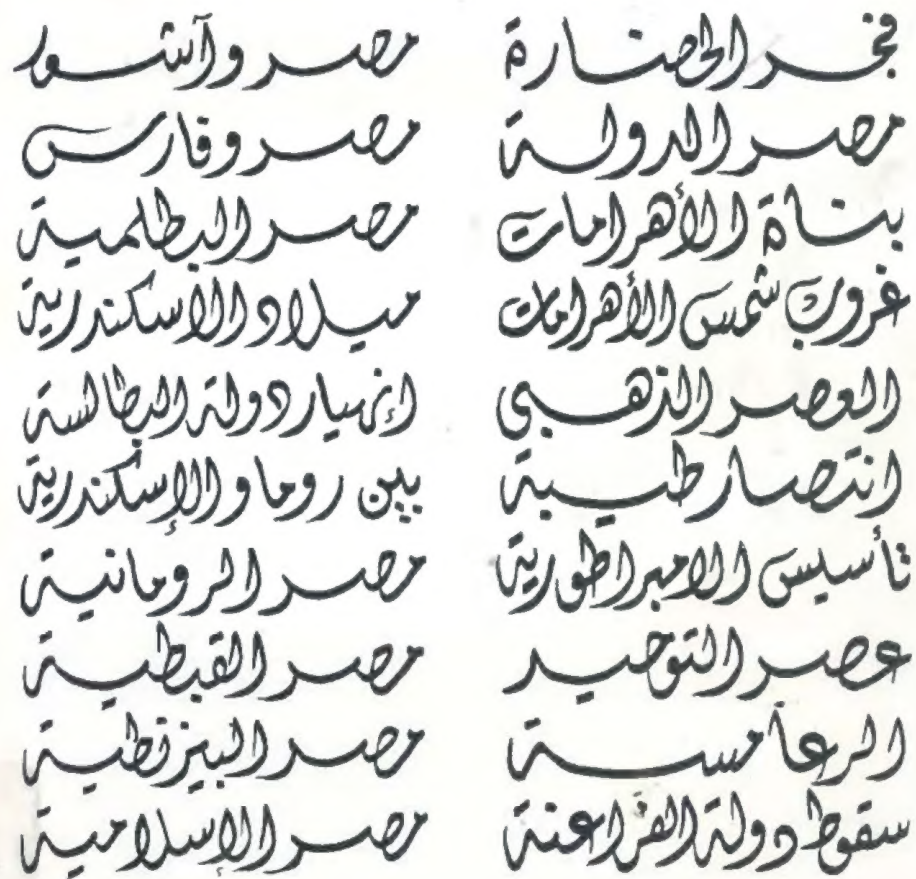 فجر الحضارة
مصر الدولة
بناة الأهرامات
غروب شمس الأهرامات
العصر الذهبي
انتصار طيبة
تأسيس الامبراطورية
عصر التوحيد
الرعامسة
سقوط دولة الفراعنة
مصر وآشور
مصر وفارس
مصر البطلمية
ميلاد الاسكندرية
إنهيار دولة البطالسة
بين روما والإسكندرية
مصر الرومانية
مصر القبطية
مصر البيزنطية
مصر الإسلامية